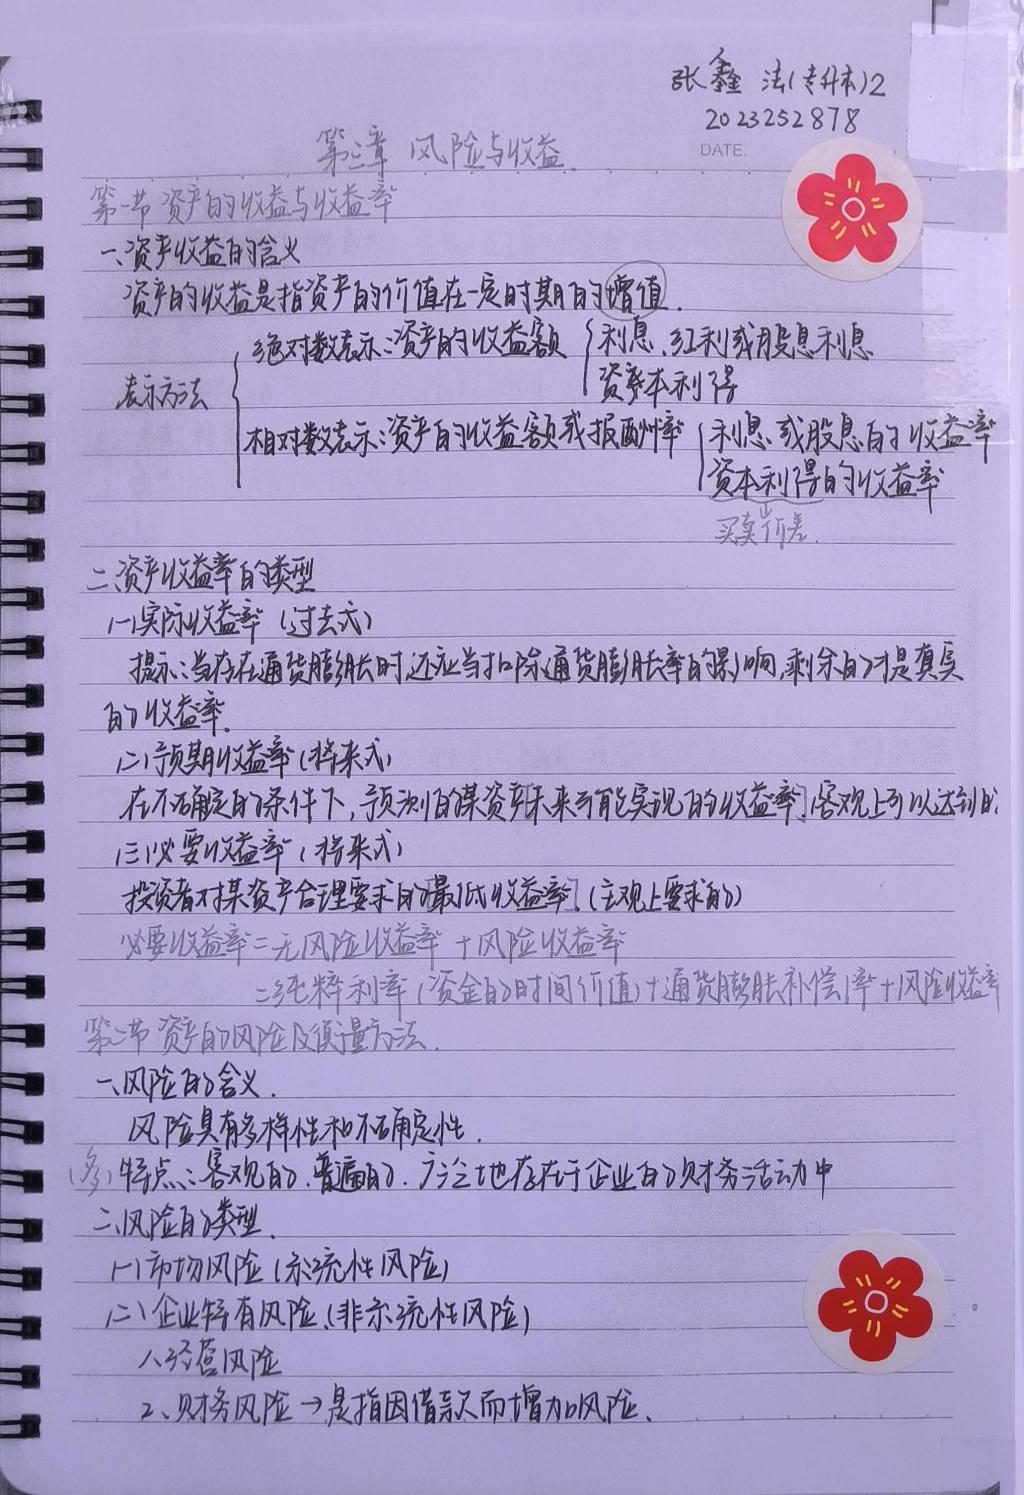 张鑫 法(专升本)2
2023252878
DATE.
第二章 风险与收益.
第一节 资产的收益与收益率
一、资产收益的含义
资产的收益是指资产的价值在一定时期的增值.
绝对数表示:资产的收益额 利息、红利或股息利息
资本利得
表示方法
相对数表示:资产的收益额或报酬率 利息或股息的收益率
资本利得的收益率
买卖价差.
二、资产收益率的类型
(一)实际收益率(过去式)
提示:当存在通货膨胀时,还应当扣除通货膨胀率的影响,剩余的才是真实
的收益率.
(二)预期收益率(将来式)
在不确定的条件下,预测的某资产未来可能实现的收益率.(客观上可以达到的
(三)必要收益率(将来式)
投资者对某资产合理要求的最低收益率.(主观上要求的)
必要收益率=无风险收益率+风险收益率
=纯粹利率(资金的时间价值)+通货膨胀补偿率+风险收益率
第二节 资产的风险及衡量方法.
一、风险的含义.
风险具有多样性和不确定性.
(多)特点:客观的、普遍的、广泛地存在于企业的财务活动中
二、风险的类型.
(一)市场风险(系统性风险)
(二)企业特有风险、(非系统性风险)
1、经营风险
2、财务风险→是指因借款而增加风险.